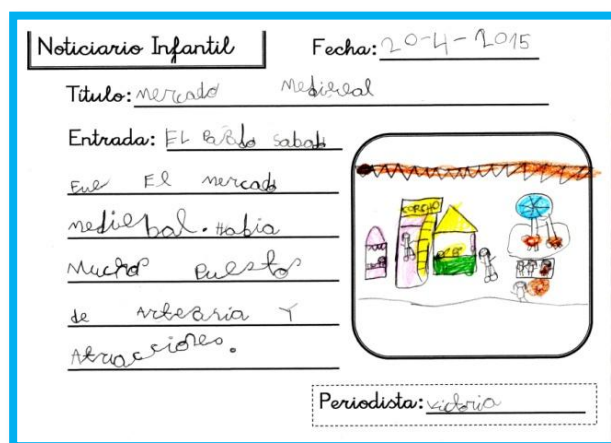 Noticiario Infantil
Fecha: 20-4-2015
Título: mercado medieval
Entrada: EL PASado sabado
Fue El mercado
medieBal. Habia
Muchos Puestos
de ArteSaria Y
Atracciones.
CORCHO
Periodista: Victoria